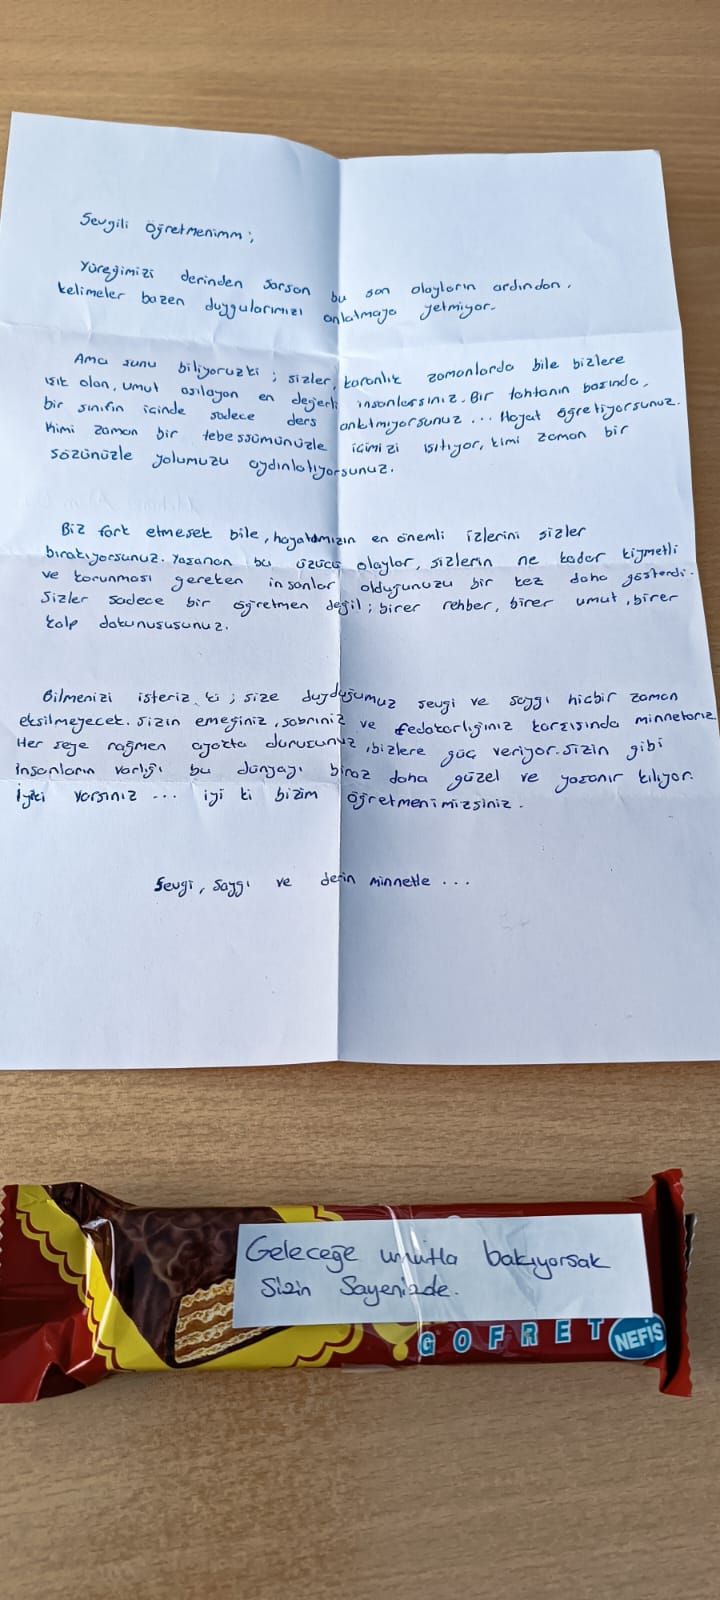 Sevgili Öğretmenimm;
Yüreğimizi derinden sarsan bu son olayların ardından.
kelimeler bazen duygularımızı anlatmaya yetmiyor.
Ama şunu biliyoruzki; sizler, karanlık zamanlarda bile bizlere
ışık olan, umut aşılayan en değerli insanlarsınız. Bir tahtanın başında,
bir sınıfın içinde sadece ders anltmıyorsunuz... Hayat öğretiyorsunuz.
Kimi zaman bir tebessümünüzle içimizi ısıtıyor, kimi zaman bir
sözünüzle yolumuzu aydınlatıyorsunuz.
Biz fark etmesek bile, hayatımızın en önemli izlerini sizler
bırakıyorsunuz. Yaşanan bu üzücü olaylar, sizlerin ne kadar kıymetli
ve korunması gereken insanlar olduğunuzu bir kez daha gösterdi.
Sizler sadece bir öğretmen değil; birer rehber, birer umut, birer
kalp dokunuşusunuz.
Bilmenizi isteriz ki; size duyduğumuz sevgi ve saygı hiçbir zaman
eksilmeyecek. Sizin emeğiniz, sabrınız ve fedakarlığınız karşısında minnetarız.
Her şeye rağmen ayakta duruşunuz, bizlere güç veriyor. Sizin gibi
insanların varlığı bu dünyayı biraz daha güzel ve yaşanır kılıyor.
İyiki varsınız... iyi ki bizim öğretmenimizsiniz.
Sevgi, saygı ve derin minnetle...
Geleceğe umutla bakıyorsak
Sizin Sayenizde.
GOFRET NEFİS